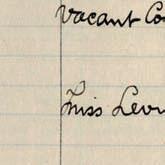 Vacant Co
Miss Levi